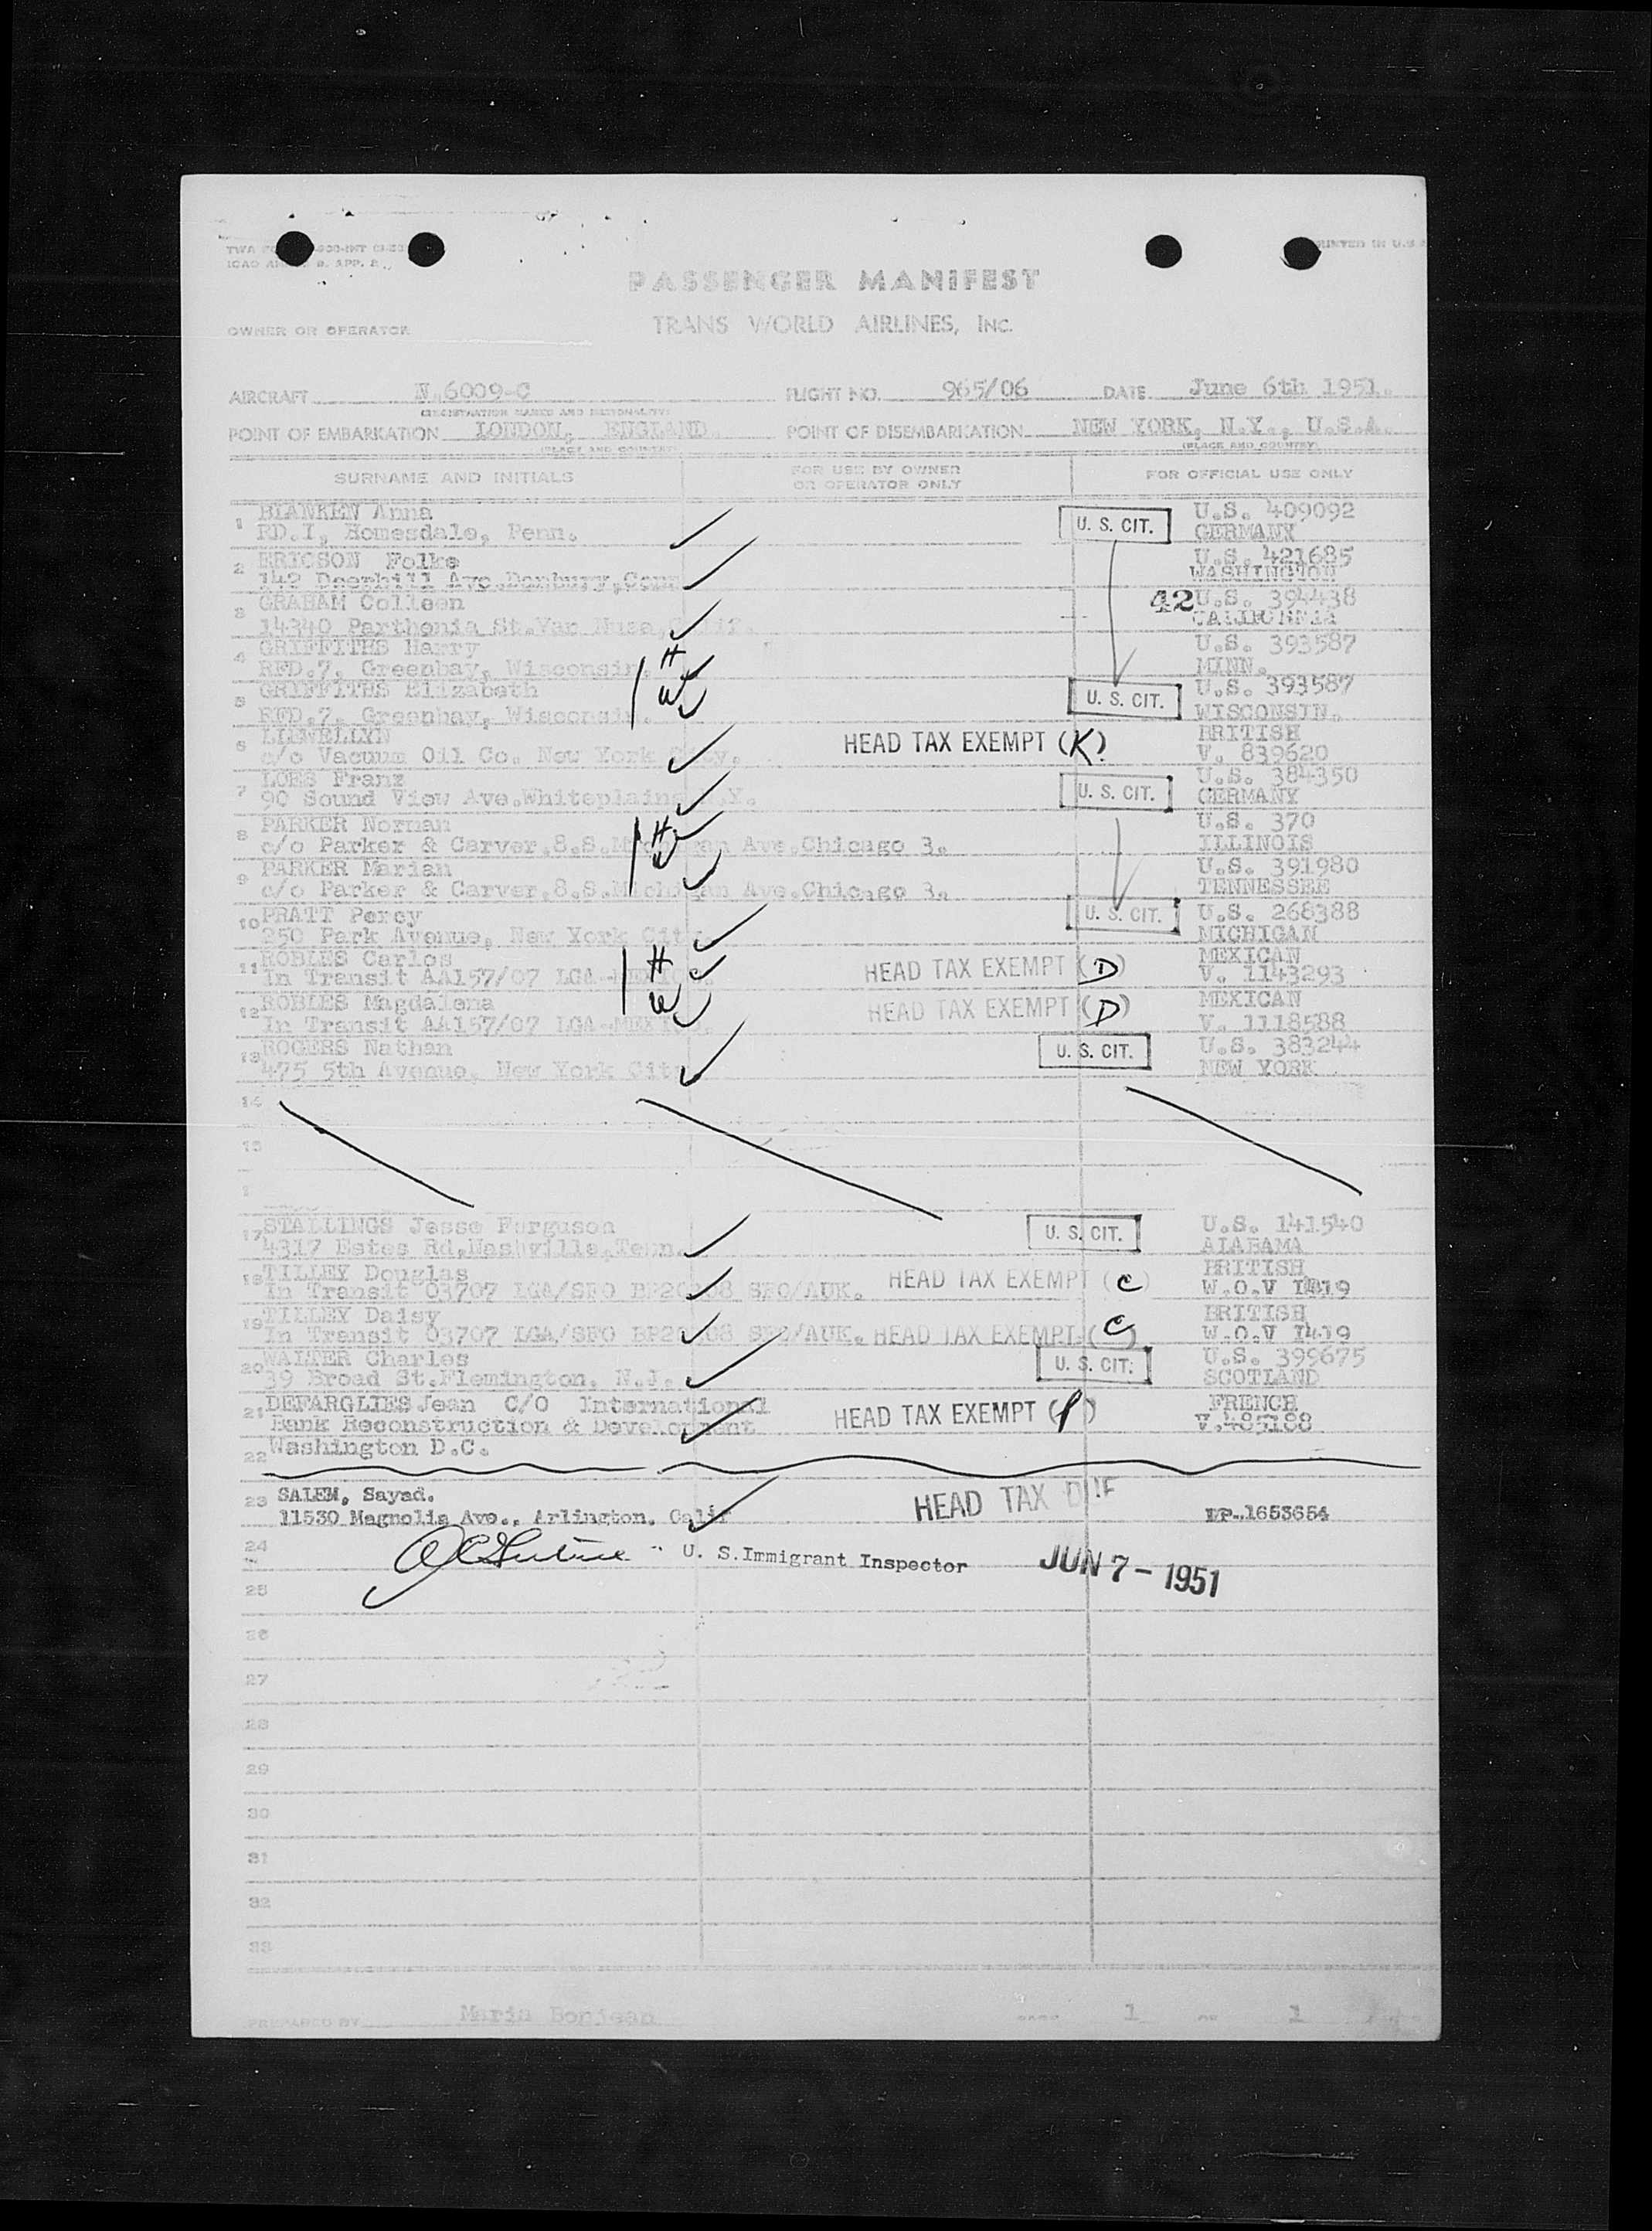 PRINTED IN U.S.A.
PASSENGER MANIFEST
OWNER OR OPERATOR TRANS WORLD AIRLINES, INC.
AIRCRAFT N.6009-C FLIGHT NO. 965/06 DATE June 6th 1951.
(REGISTRATION MARKS AND NATIONALITY)
POINT OF EMBARKATION LONDON, ENGLAND. POINT OF DISEMBARKATION NEW YORK, N.Y., U.S.A.
(PLACE AND COUNTRY) (PLACE AND COUNTRY)
SURNAME AND INITIALS FOR USE BY OWNER OR OPERATOR ONLY FOR OFFICIAL USE ONLY
1 BLANKEN Anna U. S. CIT. U.S. 409092
RD.I, Homesdale, Penn. GERMANY
2 ERICSON Folke U.S. 421685
142 Deerhill Ave.Danbury,Conn WASHINGTON
3 GRAHAM Colleen 42 U.S. 394438
14340 Parthenia St.Van Nuse, Calif. CALIFORNIA
4 GRIFFITHS Harry H U.S. 393587
RFD.7, Greenbay, Wisconsin. MINN.
5 GRIFFITHS Elizabeth W U. S. CIT. U.S. 393587
RFD.7, Greenbay, Wisconsin. WISCONSIN.
6 LLEWELLYN HEAD TAX EXEMPT (K) BRITISH
c/o Vacuum Oil Co. New York City. V. 839620
7 LOES Franz U. S. CIT. U.S. 384350
90 Sound View Ave.Whiteplains N.Y. GERMANY
8 PARKER Norman H U.S. 370
c/o Parker & Carver,8.S.Michigan Ave.Chicago 3. ILLINOIS
9 PARKER Marian W U.S. 391980
c/o Parker & Carver,8.S.Michigan Ave.Chicago 3. TENNESSEE
10 PRATT Percy U. S. CIT. U.S. 268388
250 Park Avenue, New York City MICHIGAN
11 ROBLES Carlos H HEAD TAX EXEMPT (D) MEXICAN
In Transit AA157/07 LGA-MEXICO. V. 1143293
12 ROBLES Magdalena W HEAD TAX EXEMPT (D) MEXICAN
In Transit AA157/07 LGA-MEXICO. V. 1118588
13 ROGERS Nathan U. S. CIT. U.S. 383244
475 5th Avenue, New York City NEW YORK
14
15
17 STALLINGS Jesse Ferguson U. S. CIT. U.S. 141540
4317 Estes Rd,Nashville,Tenn. ALABAMA
18 TILLEY Douglas HEAD TAX EXEMPT (C) BRITISH
In Transit 03707 LGA/SFO BP20308 SFO/AUK. W.O.V 1419
19 TILLEY Daisy BRITISH
In Transit 03707 LGA/SFO BP20308 SFO/AUK. HEAD TAX EXEMPT (C) W.O.V 1419
20 WALTER Charles U. S. CIT. U.S. 399675
39 Broad St.Flemington, N.J. SCOTLAND
21 DEFARGLIES Jean C/O International HEAD TAX EXEMPT (f) FRENCH
Bank Reconstruction & Development V.485188
22 Washington D.C.
23 SALEM, Sayed. HEAD TAX DUE
11530 Magnolia Ave., Arlington, Calif RP.1653654
24 U. S. Immigrant Inspector JUN 7 - 1951
25
26
27
28
29
30
31
32
33
PREPARED BY Maria Bonjean PAGE 1 OF 1